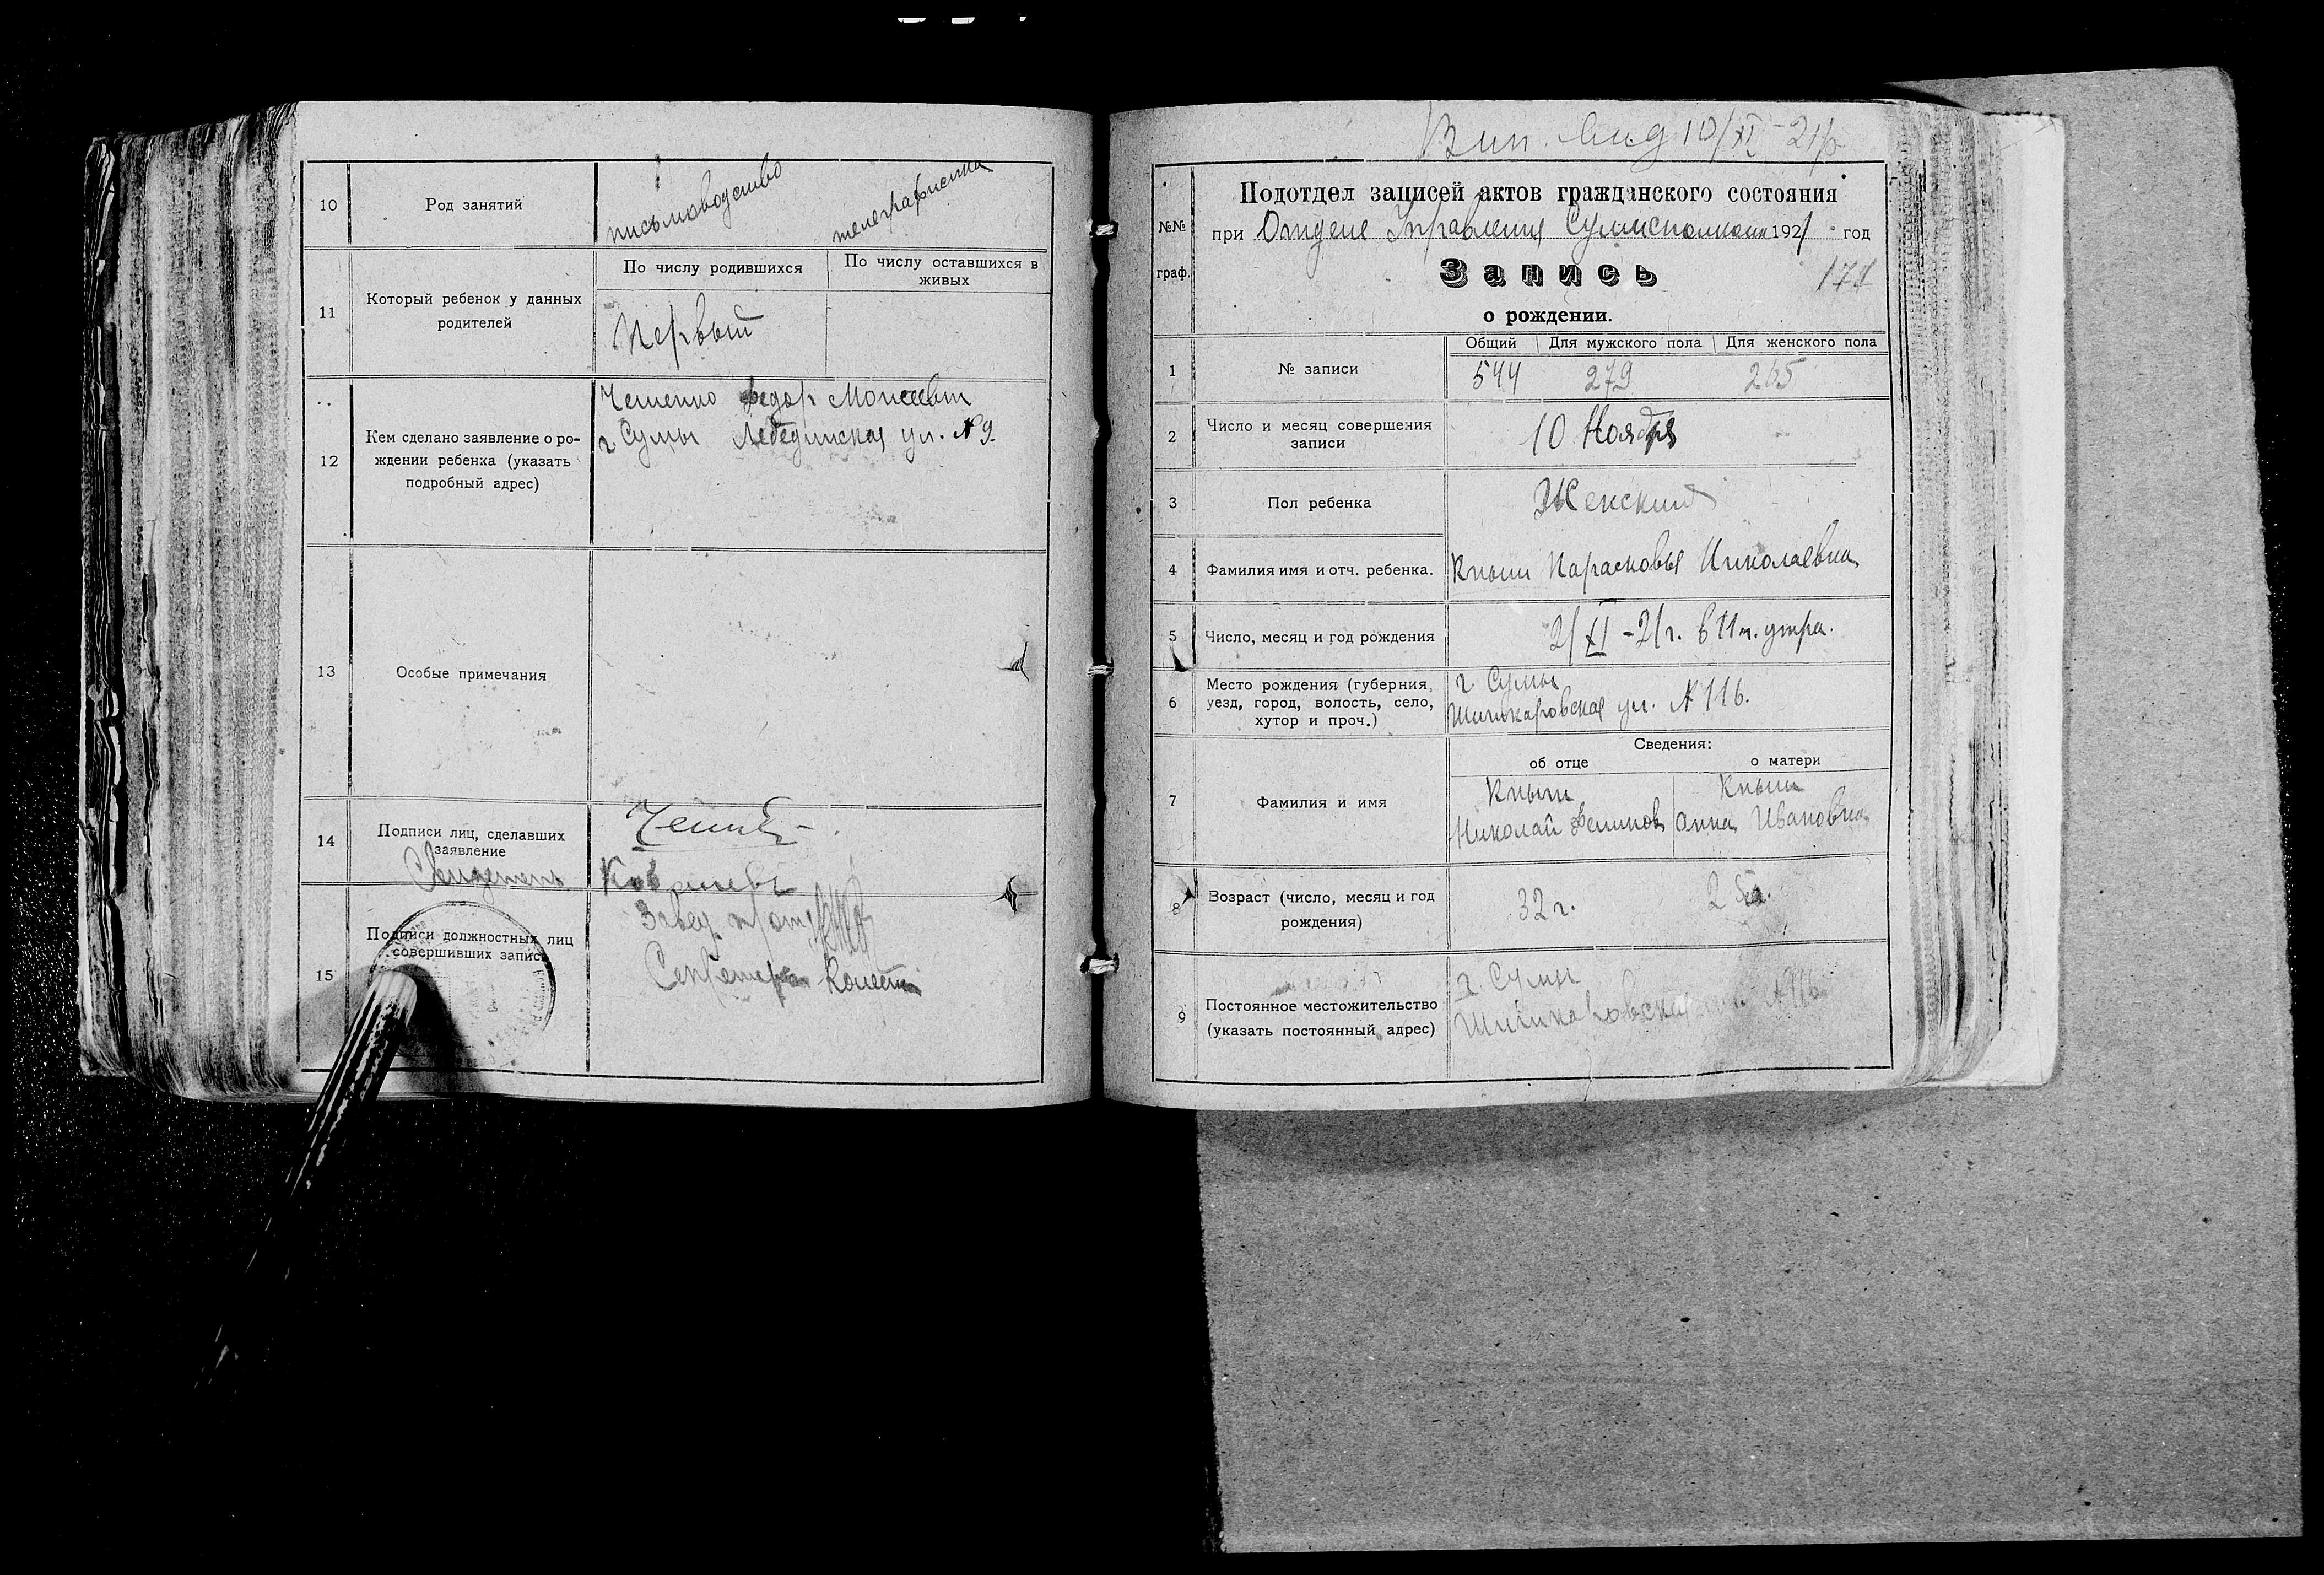 10
Род занятий
письмоводство
телеграфистка
11
Который ребенок у данных
родителей
По числу родившихся
По числу оставшихся в
живых
Первый
12
Кем сделано заявление о ро-
ждении ребенка (указать
подробный адрес)
Чешенко Федор Моисеевич
г. Сумы Лебединская ул. № 9.
13
Особые примечания
14
Подписи лиц, сделавших
заявление
Свидетель
15
Подписи должностных лиц
совершивших запись
Завед.
Секретарь
10/XI-21
№№
граф.
Подотдел записей актов гражданского состояния
при Отделе Управления Сумисполкома 1921 год
Запись
о рождении.
171
1
№ записи
Общий
Для мужского пола
Для женского пола
544
279
265
2
Число и месяц совершения
записи
10 Ноября
3
Пол ребенка
Женский
4
Фамилия имя и отч. ребенка.
Кныш Парасковья Николаевна
5
Число, месяц и год рождения
2/XI-21г. в 11 ч. утра.
6
Место рождения (губерния,
уезд, город, волость, село,
хутор и проч.)
г Сумы
Шишкаровская ул. № 116.
7
Фамилия и имя
Сведения:
об отце
о матери
Кныш
Кныш
Николай
Анна Ивановна
8
Возраст (число, месяц и год
рождения)
32 г.
9
Постоянное местожительство
(указать постоянный адрес)
г. Сумы
Шишкаровская № 116